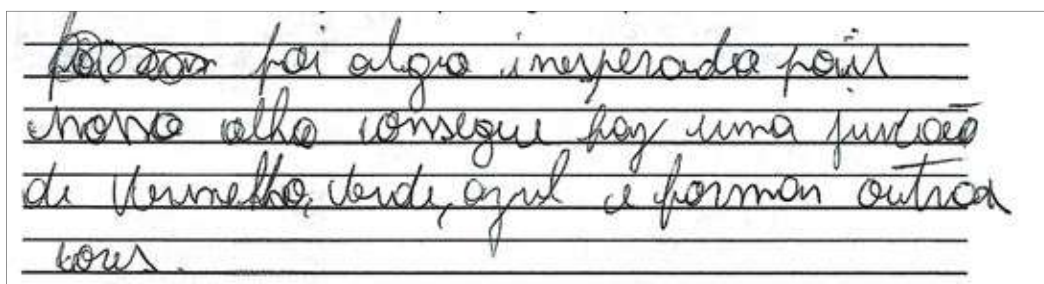 foi algo inesperado pois
nosso olho consegue faz uma junção
de vermelho, verde, azul e formar outras
cores.